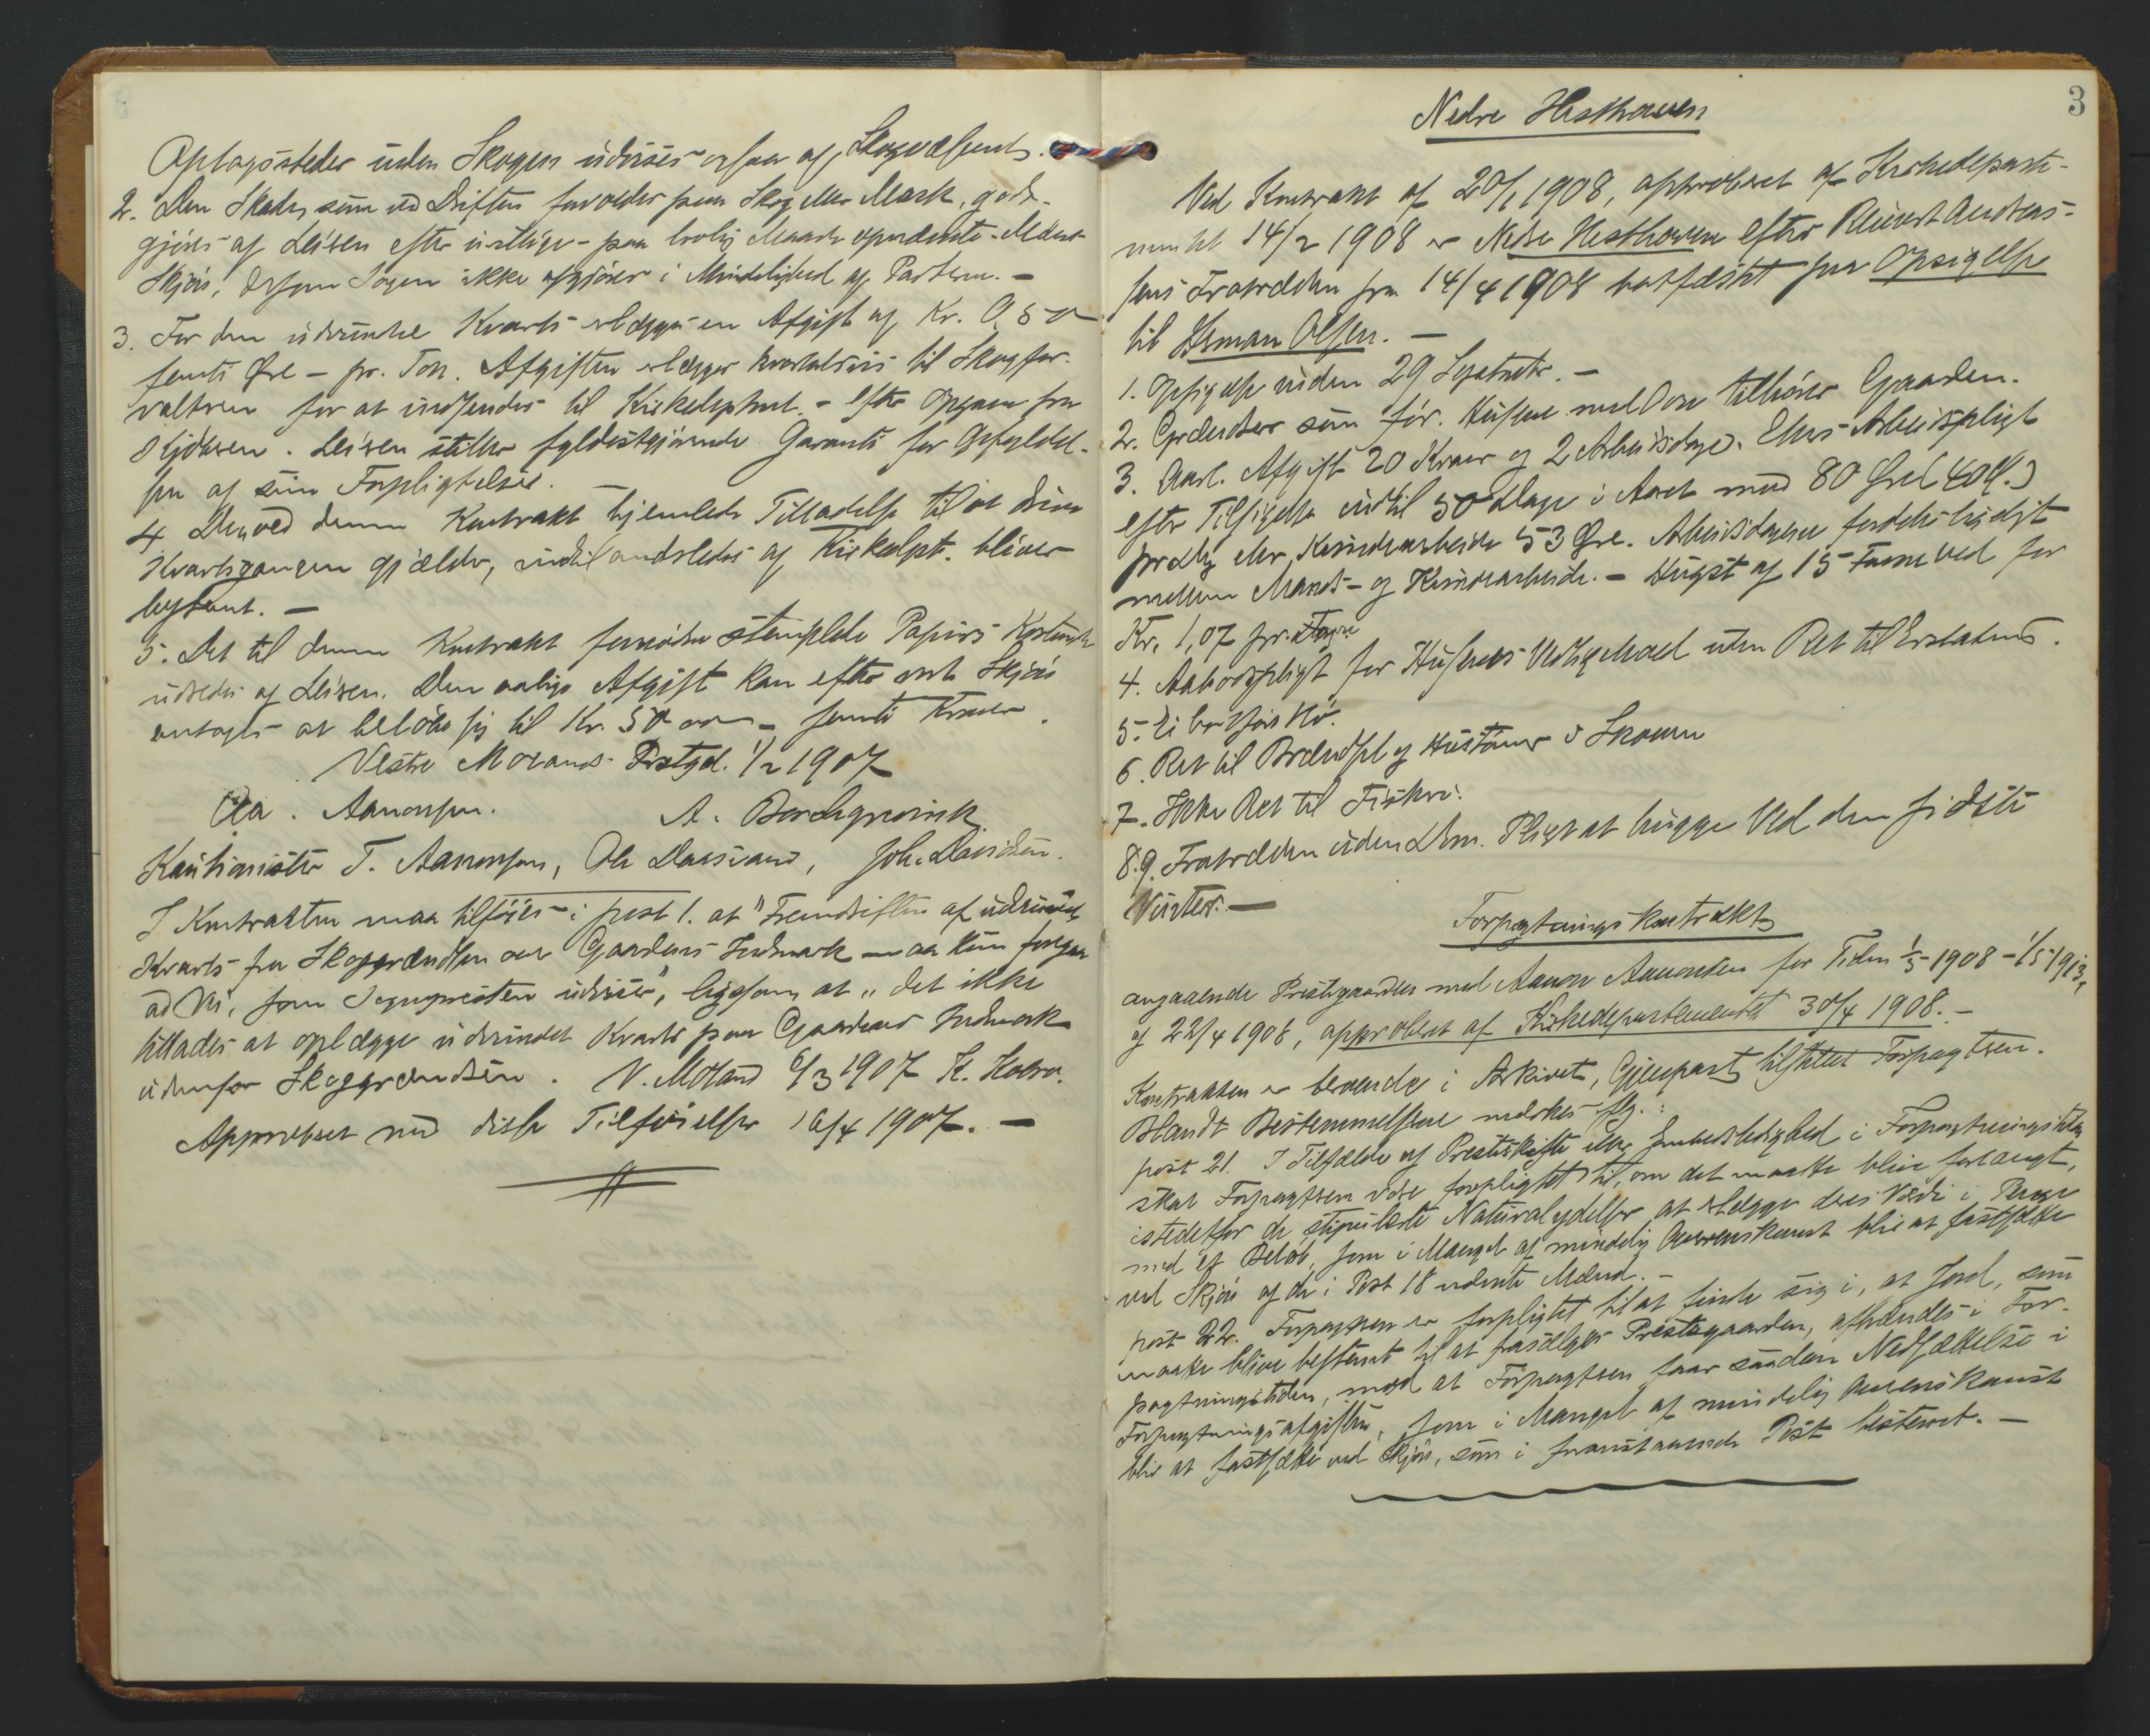 Oplagssteder uden Skogen udvises ogsaa af Skogvæsenet.
2. Den Skade, som ved Driften forvoldes paa Skog eller Mark, godt-
gjøres af Leieren efter uvillige - paa lovlig Maade opnævnte - Mænds
Skjøn, dersom Sagen ikke afgjøres i Mindelighed af Parterne. -
3. For den udvundne Kvarts erlægges en Afgift af Kr. 0,50
femti Øre - pr. Ton. Afgiften erlægges kvartalsvis til Skogfor-
valteren for at indsendes til Kirkedeptmt. - efter Opgave fra
Kjøberen. Leieren stiller fyldestgjørende Garanti for Opfyldel-
sen af sine Forpligtelser.
4 Den ved denne Kontrakt hjemlede Tilladelse til at drive
Kvartsgangen gjælder, indtil anderledes af Kirkedept. bliver
bestemt. -
5. Det til denne Kontrakt fornødne stemplede Papirs Kostende
udredes af Leieren. Den aarlige Afgift kan efter mit Skjøn
antages at beløbe sig til Kr. 50 00 - femti Kroner.
Vestre Moland Prstgd. 1/2 1907
Aa. Aanonsen. A. Borchgrevink
Kautionister T. Aanonsen, Ole Daasvand, Joh. Davidsen.
I Kontrakten maa tilføies i post 1. at "Fremdriften af udvundet
Kvarts fra Skoggrændsen over Gaardens Indmark maa kun foregaa
ad Vei, som Sognepresten udviser", ligesom at "det ikke
tillades at oplægge udvundet Kvarts paa Gaardens Indmark
udenfor Skoggrændsen. V. Moland 6/3 1907 K.
Approberet med disse Tilføielser 16/4 1907. -
3
Nedre Hesthaven
Ved Kontrakt af 20/1 1908, approberet af Kirkedeparte-
mentet 14/2 1908 er Nedre Hesthaven efter Reinert Andreas-
sens Fratrædelse fra 14/4 1908 bortfæstet paa Opsigelse
til Herman Olsen. -
1. Opsigelse inden 29 Septmbr. -
2. Grændser som før. Husene med Ovne tilhører Gaarden.
3. Aarl. Afgift 20 Kroner og 2 Arbeidsdage. Ellers Arbeidspligt
efter Tilsigelse indtil 50 Dage i Aaret mod 80 Øre (40 )
pr dag eller Kvindearbeide 53 Øre. Arbeidsdagene fordeles ligeligt
mellem Mands- og Kvindearbeide. - Hugst af 15 Favne Ved for
Kr. 1,07 pr. Favn
4. Aabodspligt for Husenes Vedligehold uden Ret til Erstatning.
5. Ei bortføre Hø.
6. Ret til Brændsel og Hustømmer i Skoven
7. Ikke Ret til Fiskeri.
8.9. Fratrædelse uden Lovm. Pligt at hugge Ved den sidste
Vinter. -
Forpagtningskontrakt
angaaende Prestegaarden med Aanon Aanonsen for Tiden 1/5 1908 - 1/5 1913,
af 22/4 1908, approberet af Kirkedepartementet 30/4 1908. -
Kontrakten er beroende i Arkivet, Gjenpart tilstillet Forpagteren.
Blandt Bestemmelserne mærkes flg.:
post 21. I Tilfælde af Presteskifte eller Embedsledighed i Forpagtningstiden
skal Forpagteren være forpligtet til, om det maatte blive forlangt,
istedetfor de stipulerte Naturalydelser at erlægge deres Værdi i Penge
med et Beløb, som i Mangel af mindelig Overenskomst blir at fastsætte
ved Skjøn af de i Post 18 nævnte Mænd. -
post 22. Forpagteren er forpligtet til at finde sig i, at Jord, som
maatte blive bestemt til at frasælges Prestegaarden, afhændes i For-
pagtningstiden, mod at Forpagteren faar saadan Nedsættelse i
Forpagtningsafgiften, som i Mangel af mindelig Overenskomst
blir at fastsætte ved Skjøn, som i foranstaaende Post bestemt. -